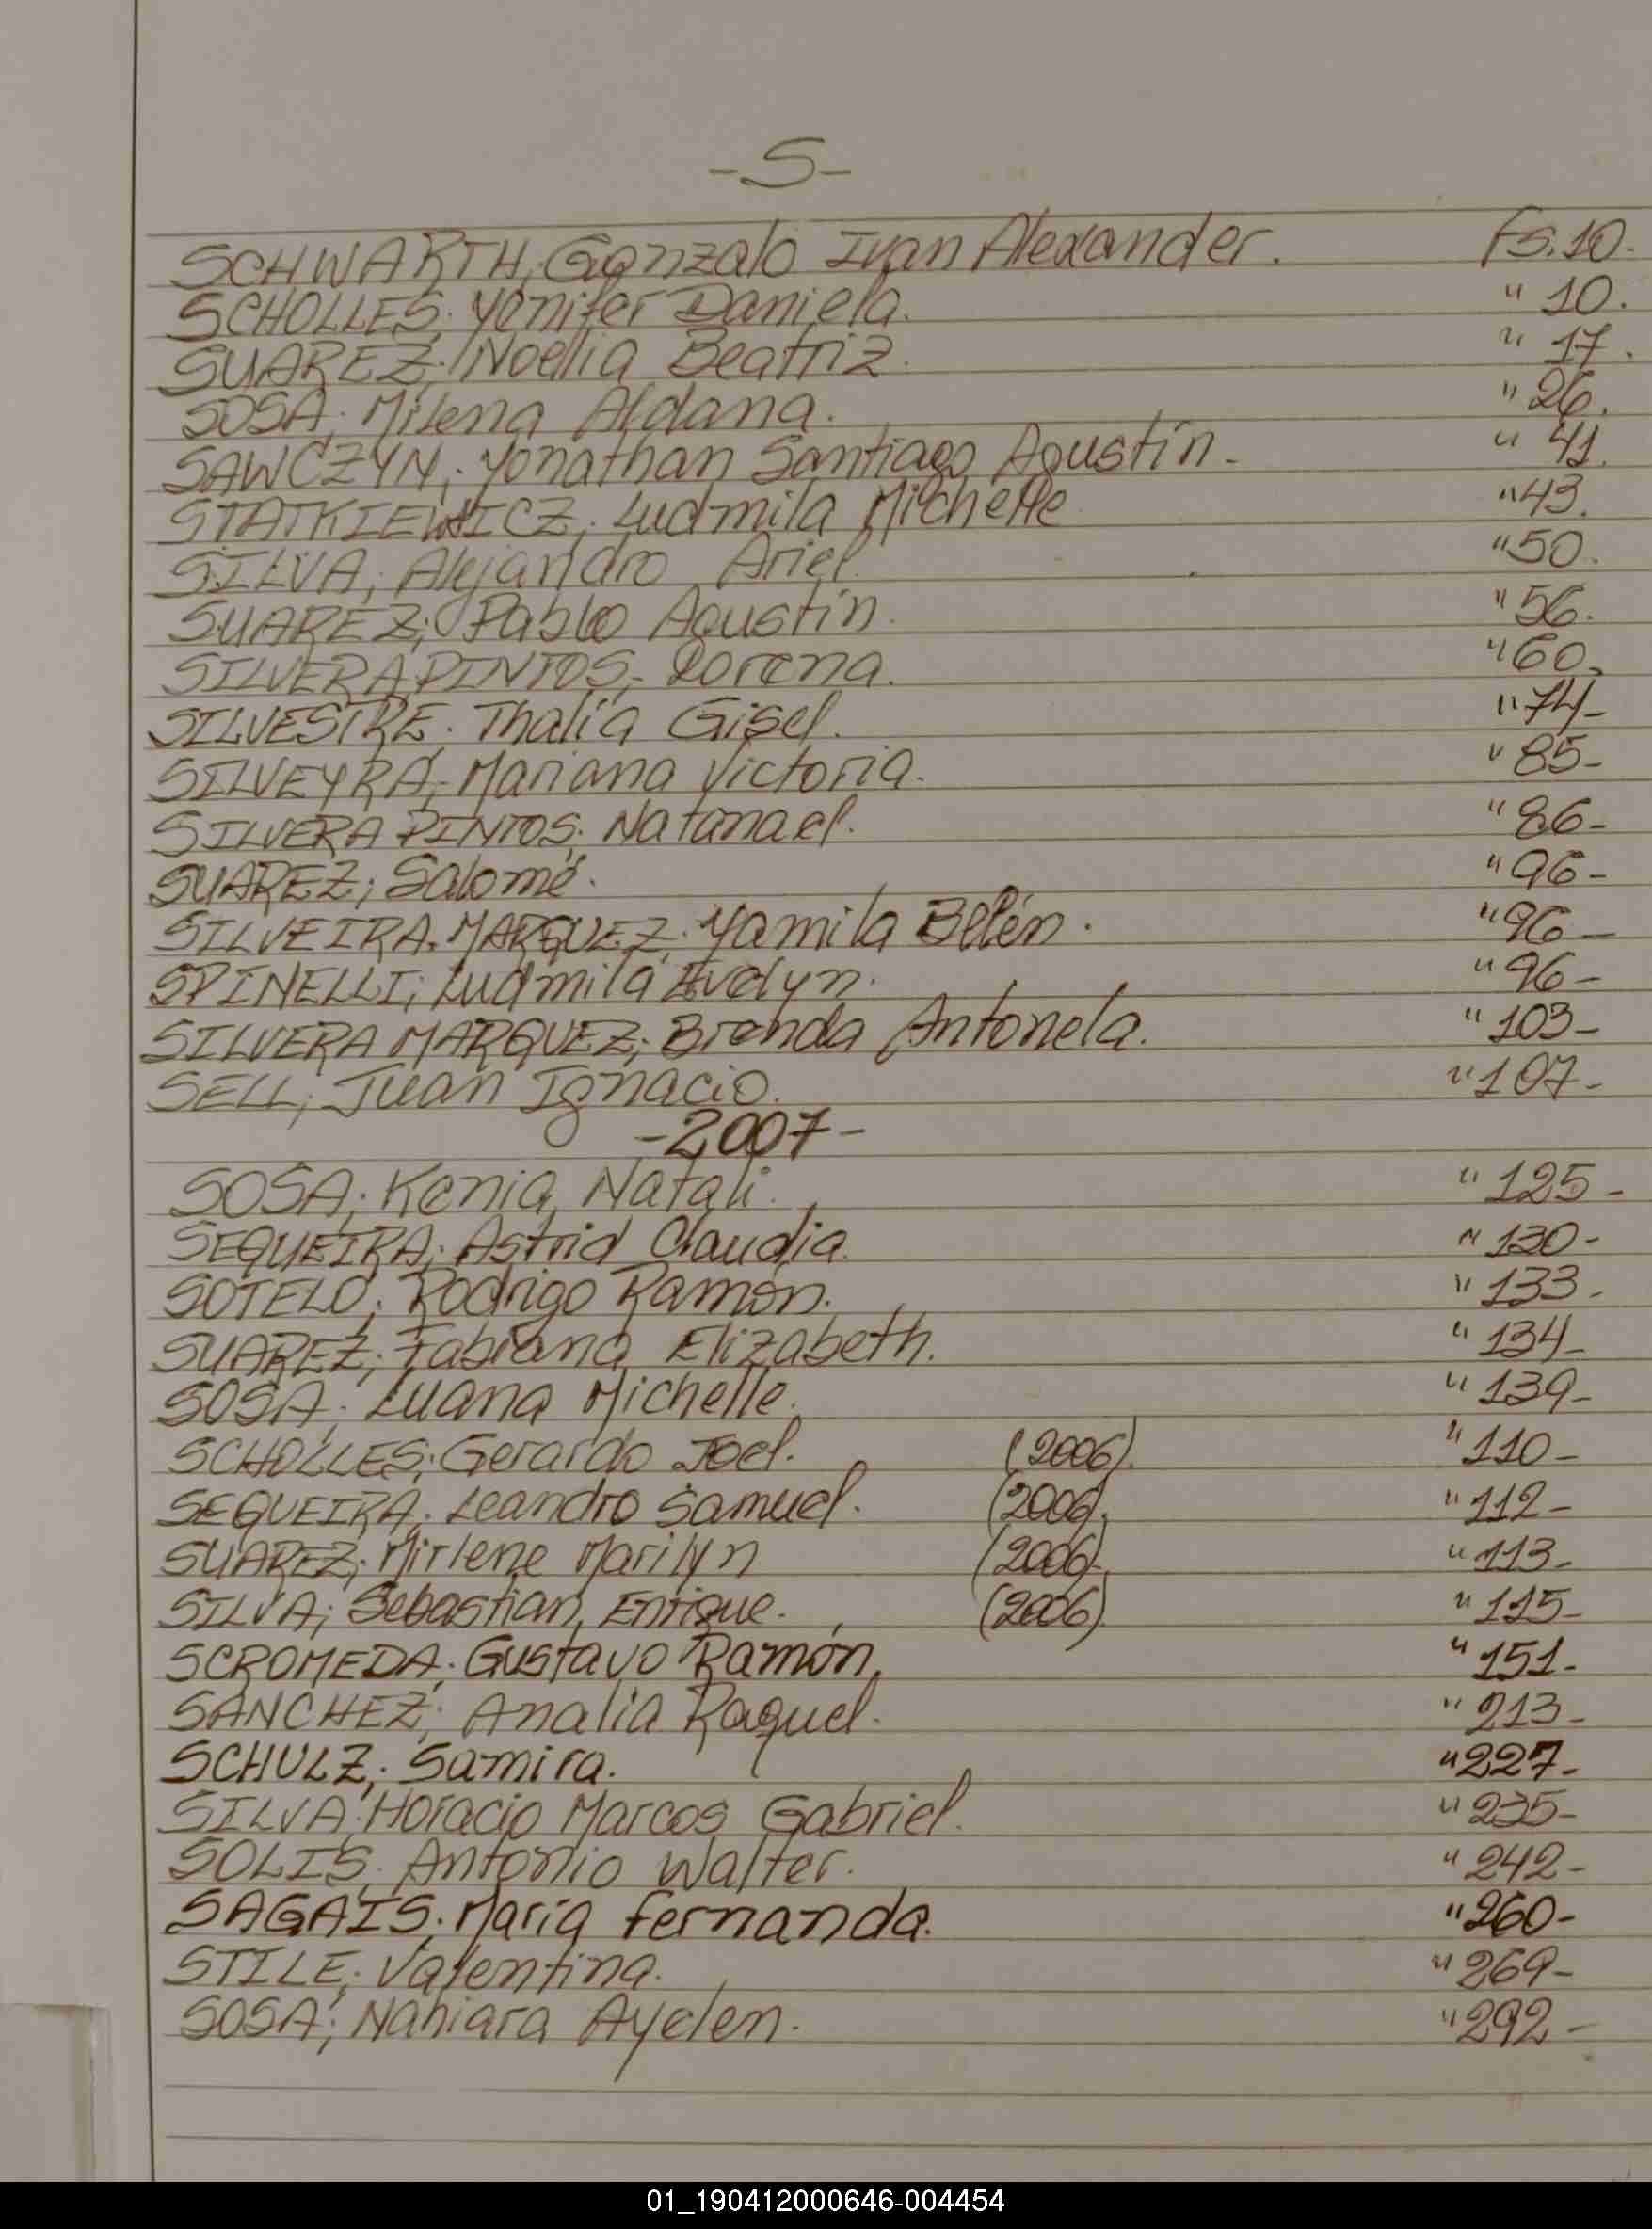 -S-
SCHWARTH; Gonzalo Ivan Alexander. Fs.10.
SCHOLLES; Yenifer Daniela. " 10.
SUAREZ; Noelia Beatriz. " 17.
SOSA; Milena Aldana. " 26.
SAWCZYN; Yonathan Santiago Agustín- " 41.
STATKIEWICZ; Ludmila Michelle " 43.
SILVA; Alejandro Ariel. " 50.
SUAREZ; Pablo Agustín. " 56.
SILVERA PINTOS; Lorena. " 60.
SILVESTRE. Thalía Gisel. " 74-
SILVEYRA; Mariana Victoria. " 85-
SILVERA PINTOS; Natanael. " 86-
SUAREZ; Salomé. " 96-
SILVEIRA. MARQUEZ; Yamila Belén. " 96-
SPINELLI; Ludmila Evelyn. " 96-
SILVERA MARQUEZ; Brenda Antonela. " 103-
SELL; Juan Ignacio. " 107-
-2007-
SOSA; Kenia Natali. " 125-
SEQUEIRA; Astrid Claudia. " 130-
SOTELO; Rodrigo Ramón. " 133.
SUAREZ; Fabiana Elizabeth. " 134-
SOSA; Luana Michelle. " 139-
SCHOLLES; Gerardo Joel. (2006). " 110-
SEQUEIRA; Leandro Samuel. (2006). " 112-
SUAREZ; Mirlene Marilyn (2006). " 113-
SILVA; Sebastian Enrique. (2006). " 115-
SCROMEDA; Gustavo Ramón. " 151-
SANCHEZ; Analia Raquel. " 213-
SCHULZ; Samira. " 227-
SILVA; Horacio Marcos Gabriel. " 235-
SOLIS; Antonio Walter. " 242-
SAGAIS; María Fernanda. " 260-
STILE; Valentina. " 269-
SOSA; Nahiara Ayelen. " 292-
01_190412000646-004454